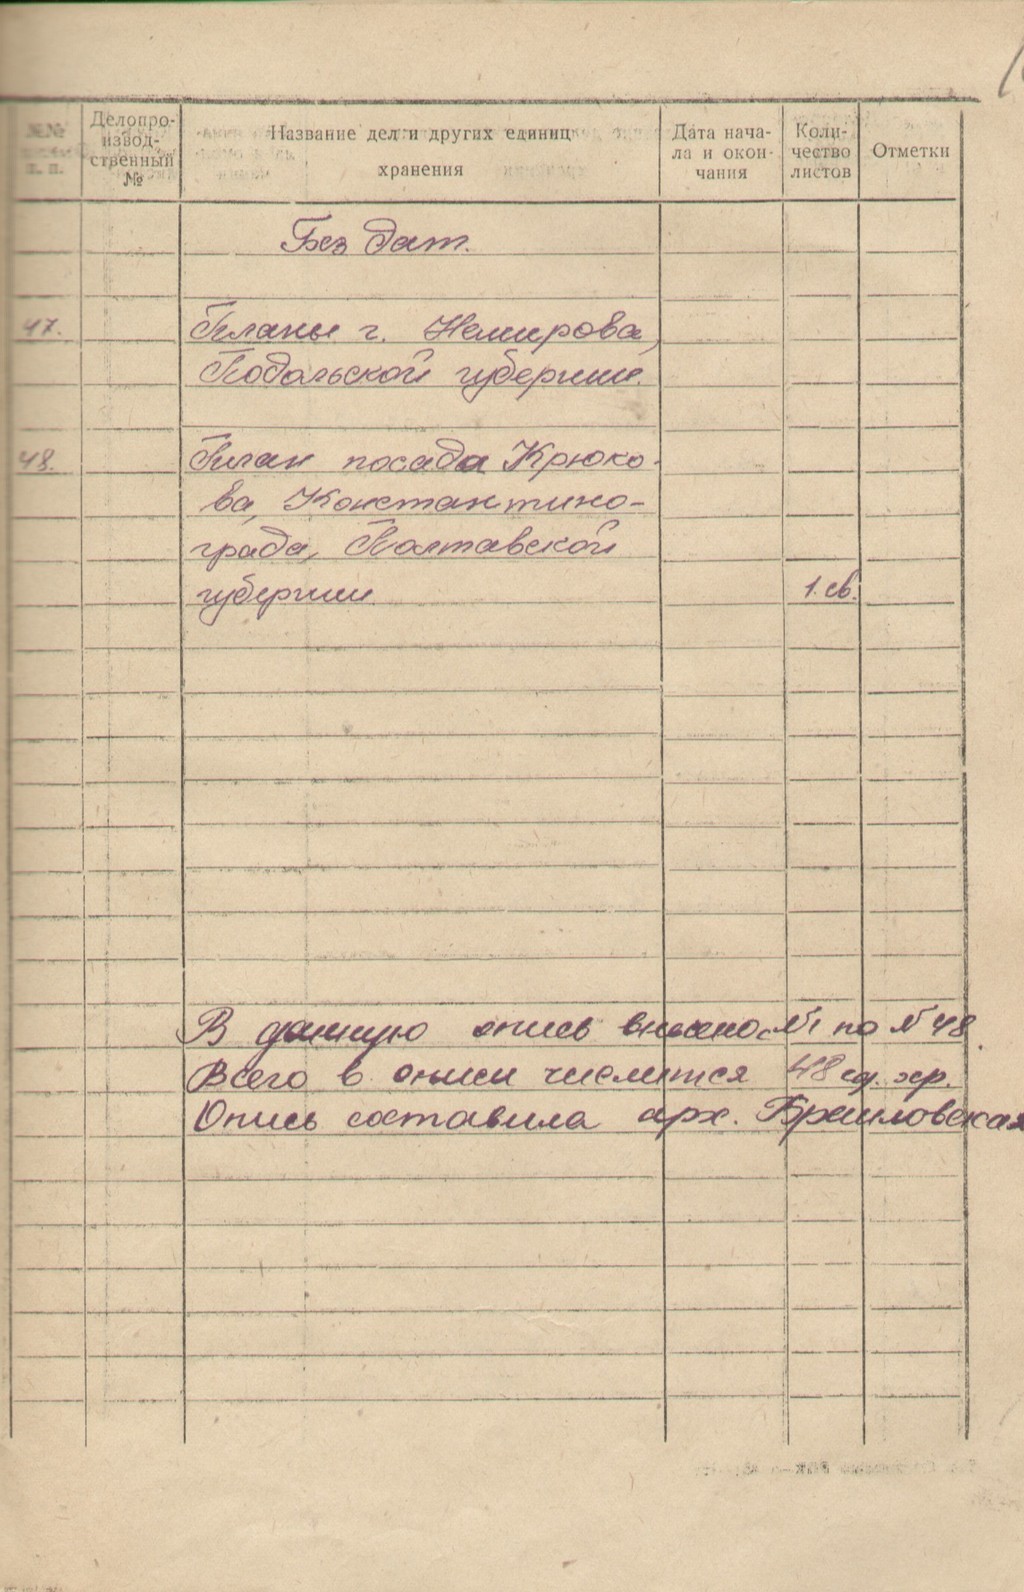 №№
п. п.
Делопро-
извод-
ственный
№
Название дел и других единиц
хранения
Дата нача-
ла и окон-
чания
Коли-
чество
листов
Отметки
Без дат.
47.
Планы г. Немирова,
Подольской губернии.
48.
План посада Крюко-
ва, Константино-
града, Полтавской
губернии.
1 св.
В данную опись внесено с №1 по №48
Всего в описи числится 48 ед. хр.
Опись составила арх. Браиловская